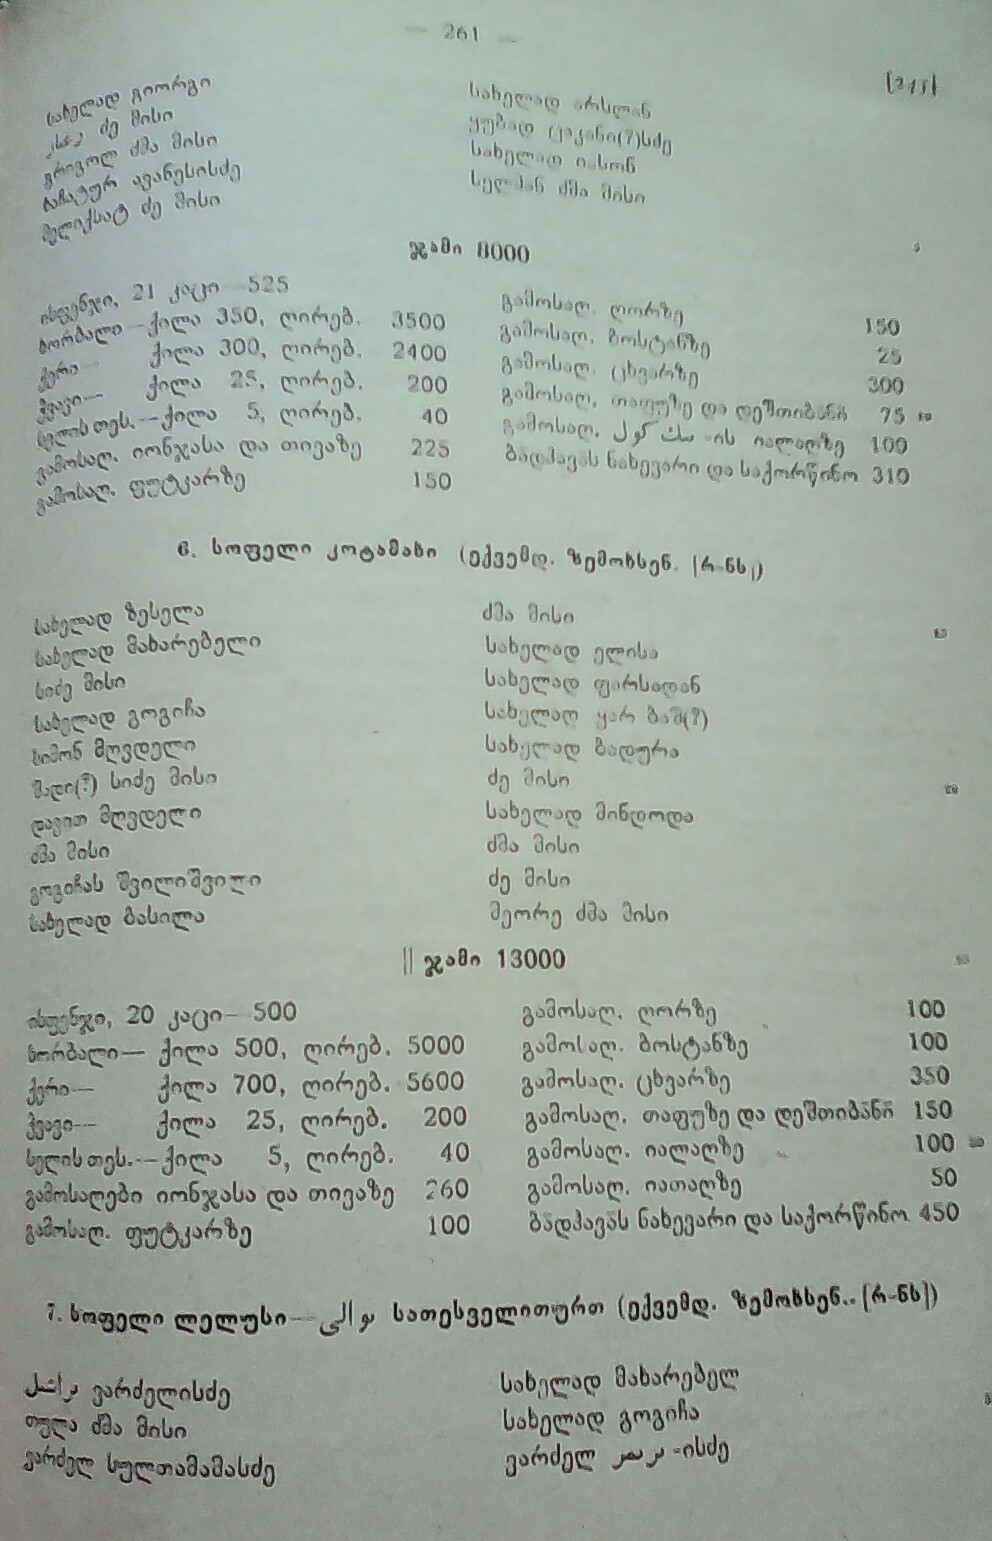 — 261 —
[215]
სახელად გიორგი
ძე მისი
გრიგოლ ძმა მისი
ხაჩატურ ავანესისძე
მელიქსატ ძე მისი
სახელად არსლან
ყუბად ცაკანი(?)სძე
სახელად იასონ
სელჰან ძმა მისი
ჯამი 8000
ისფენჯი, 21 კაცი 525
ხორბალი—ქილა 350, ღირებ. 3500
ქერი— ქილა 300, ღირებ. 2400
ჭვავი— ქილა 25, ღირებ. 200
სელის თეს.—ქილა 5, ღირებ. 40
გამოსაღ. იონჯასა და თივაზე 225
გამოსაღ. ფუტკარზე 150
გამოსაღ. ღორზე 150
გამოსაღ. ბოსტანზე 25
გამოსაღ. ცხვარზე 300
გამოსაღ. თაფუზე და დეშთიბანი 75
გამოსაღ. -ის იალაღზე 100
ბადჰავას ნახევარი და საქორწინო 310
6. სოფელი კოტამახი (ექვემდ. ზემოხსენ. [რ-ნს])
სახელად ზესელა
სახელად მახარებელი
სიძე მისი
სახელად გოგიჩა
სიმონ მღვდელი
შადი(?) სიძე მისი
დავით მღვდელი
ძმა მისი
გოგიჩას შვილიშვილი
სახელად ბასილა
ძმა მისი
სახელად ელისა
სახელად ფარსადან
სახელად ყარ ბაშ(?)
სახელად ბადურა
ძე მისი
სახელად მინდოდა
ძმა მისი
ძე მისი
მეორე ძმა მისი
|| ჯამი 13000
ისფენჯი, 20 კაცი—500
ხორბალი— ქილა 500, ღირებ. 5000
ქერი— ქილა 700, ღირებ. 5600
ჭვავი— ქილა 25, ღირებ. 200
სელის თეს.—ქილა 5, ღირებ. 40
გამოსაღები იონჯასა და თივაზე 260
გამოსაღ. ფუტკარზე 100
გამოსაღ. ღორზე 100
გამოსაღ. ბოსტანზე 100
გამოსაღ. ცხვარზე 350
გამოსაღ. თაფუზე და დეშთიბანი 150
გამოსაღ. იალაღზე 100
გამოსაღ. იათაღზე 50
ბადჰავას ნახევარი და საქორწინო 450
7. სოფელი ლელუსი— სათესველითურთ (ექვემდ. ზემოხსენ.. [რ-ნს])
ვარძელისძე
თულა ძმა მისი
ვარძელ სულთამამასძე
სახელად მახარებელ
სახელად გოგიჩა
ვარძელ -ისძე